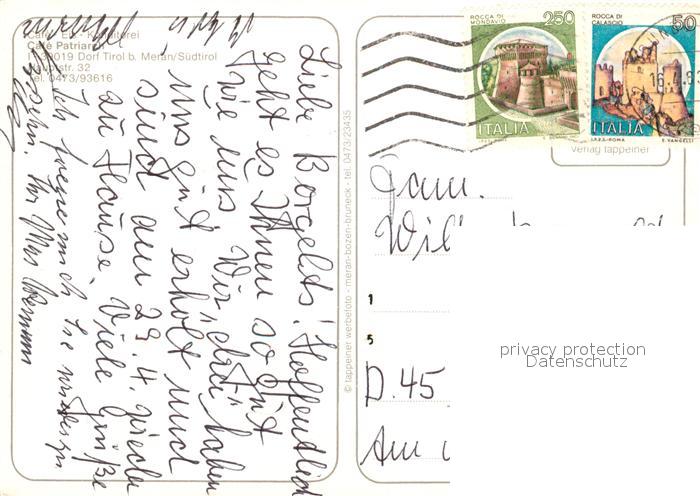 Café - Eis - Konditorei
Café Patriarch
I-39019 Dorf Tirol b. Meran/Südtirol
Hauptstr. 32
Tel. 0473/93616
Liebe Borgelds! Hoffentlich
geht es Ihnen so gut
wie uns. Wir drei haben
uns gut erholt und
sind am 29.4. wieder
zu Hause. Viele Grüße
Ich freue mich Sie wieder zu
sehen Ihr
© tappeiner werbefoto - meran-bozen-bruneck - tel. 0473/23435
ROCCA DI MONDAVIO
250
ITALIA
I.P.Z.S.-ROMA
ROCCA DI CALASCIO
50
ITALIA
I.P.Z.S.-ROMA E. VANGELLI
Verlag tappeiner
Fam.
Wil
1
5
D. 45
Am
privacy protection
Datenschutz